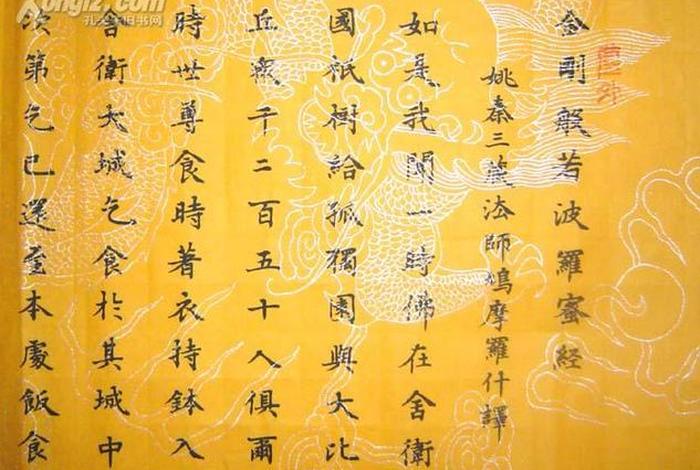 金剛般若波羅蜜经
姚秦三藏法師鳩摩羅什譯
如是我聞一時佛在舍衛
國祇樹給孤獨園與大比
丘衆千二百五十人俱爾
時世尊食時著衣持鉢入
舍衛大城乞食於其城中
次第乞已還至本處飯食
孔夫子旧书网